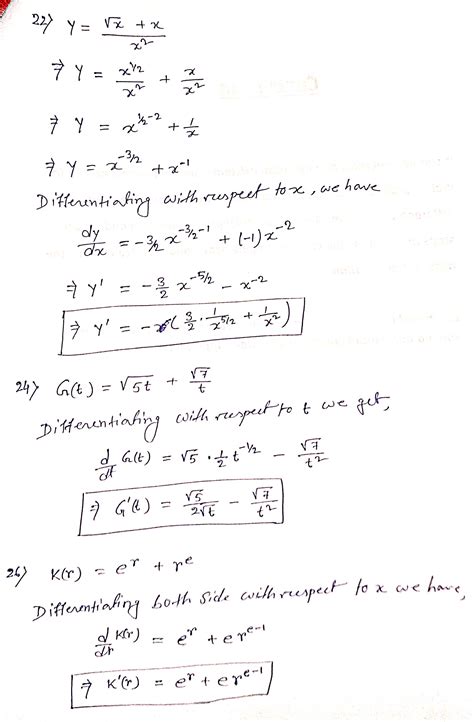 22) Y = √x + x / x²
⇒ Y = x^1/2 / x² + x / x²
⇒ Y = x^1/2-2 + 1/x
⇒ Y = x^-3/2 + x^-1
Differentiating with respect to x, we have
dy/dx = -3/2 x^-3/2-1 + (-1) x^-2
⇒ Y' = -3/2 x^-5/2 - x^-2
⇒ Y' = -(3/2 · 1/x^5/2 + 1/x²)
24) G(t) = √5t + √7/t
Differentiating with respect to t we get,
d/dt G(t) = √5 · 1/2 t^-1/2 - √7/t²
⇒ G'(t) = √5/2√t - √7/t²
26) K(r) = e^r + r^e
Differentiating both side with respect to x we have,
d/dr K(r) = e^r + e r^e-1
⇒ K'(r) = e^r + e r^e-1